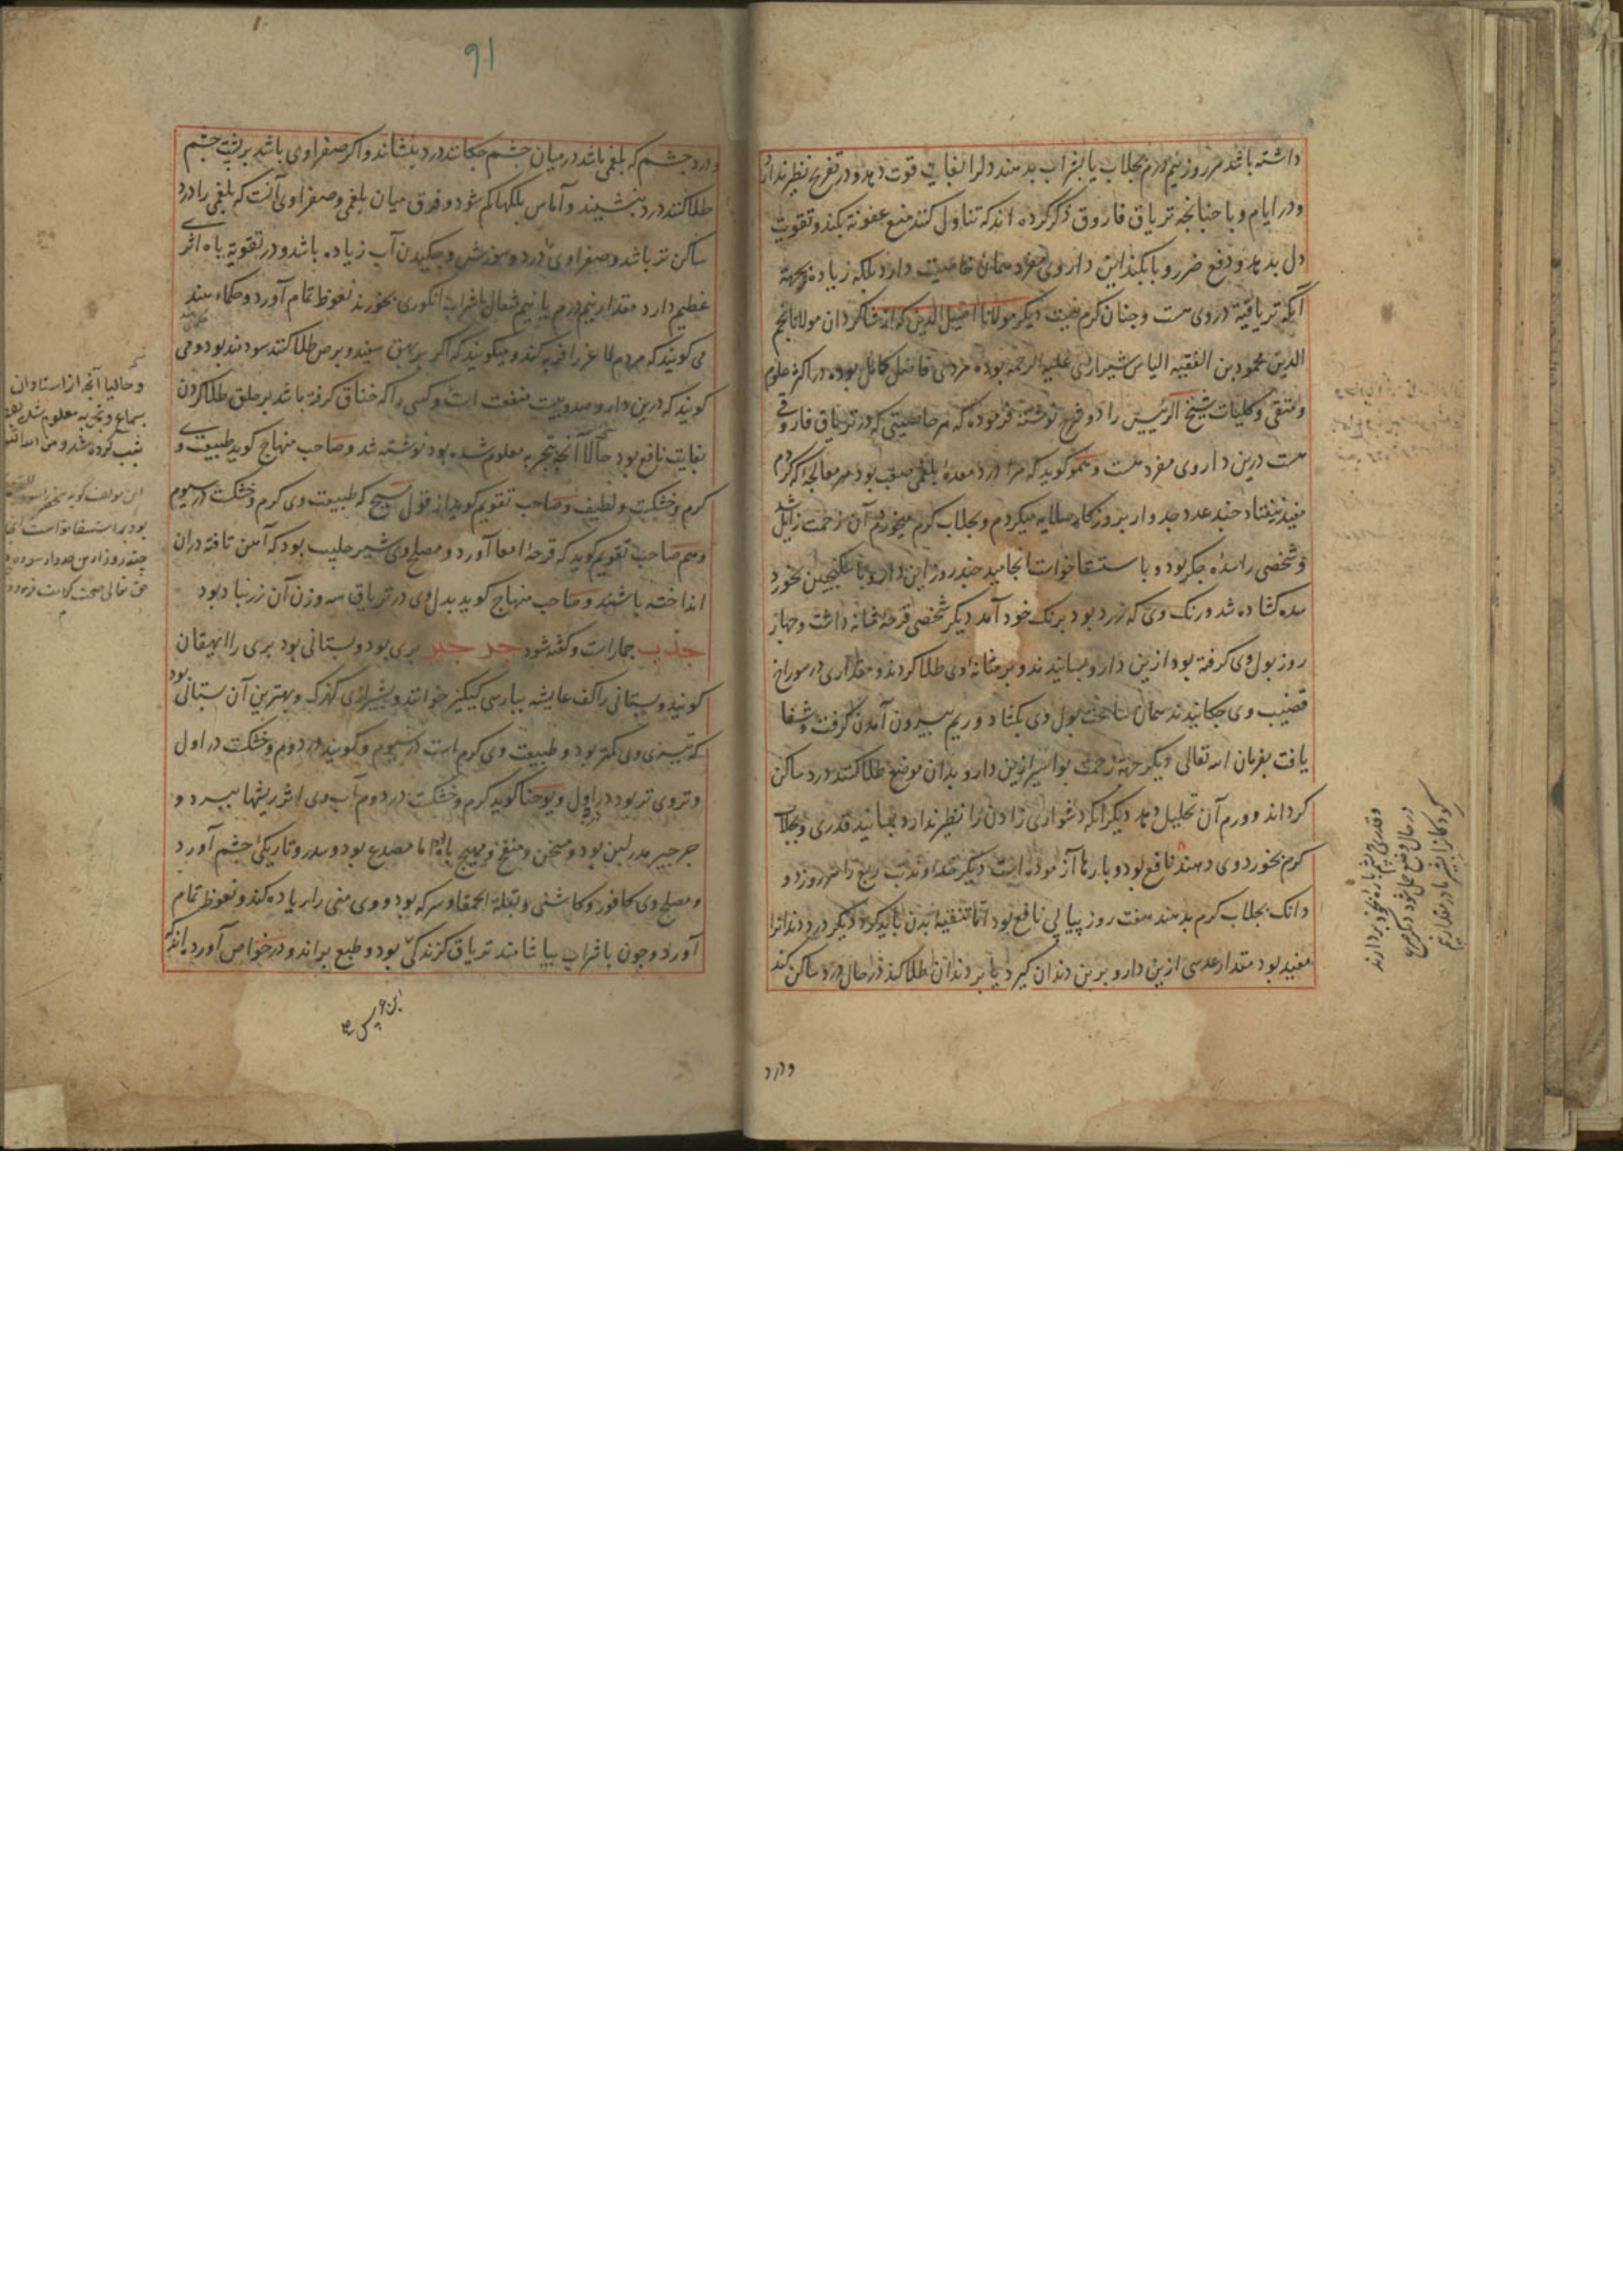 داشته باشد هر روز نیم درم بجلاب یا بشراب بدهند دل را بغایت قوت دهد و در تفریح نظیر ندارد
و در ایام وبا چنانچه تریاق فاروق ذکر کرده اند که تناول کنند منع عفونة بکند و تقویت
دل بدهد و دفع ضرر وبا بکند این داروی مفرد همان خاصیت دارد بلکه زیاده بجهة
آنکه تریاقیة در وی هست و چنان کرم نیست دیگر مولانا اصیل الدین که از شاکردان مولانا نجم
الدین محمود بن الفقیه الیاس شیرازی علیه الرحمة بوده مردی فاضل کامل بوده در اکثر علوم
و متقی و کلیات شیخ الرئیس را دو شرح نوشته فرموده که هر خاصیتی که در تریاق فاروقی
هست درین داروی مفرد هست و همو کوید که مرا درد معدهٔ بلغمی صعب بود هر معالجه که کردم
مفید نیفتاد چند عدد جدوار بروزکار صلایه میکردم و بجلاب کرم میخوردم آن زحمت زایل شد
و شخصی را سدهٔ جکر بود و باستسقا خواست انجامید چند روز این دارو با سکنجبین بخورد
سده کشاده شد و رنک وی که زرد بود برنک خود آمد دیکر شخصی قرحهٔ مثانه داشت و چهار
روز بول وی کرفته بود ازین دارو بسانیدند و بر مثانهٔ وی طلا کردند و مقداری در سوراخ
قضیب وی چکانیدند همان ساعت بول وی بکشاد و ریم بیرون آمدن کرفت و شفا
یافت بفرمان الله تعالی دیکر جهة زحمت بواسیر ازین دارو بدان موضع طلا کنند درد ساکن
کرداند و ورم آن تحلیل دهد دیکر آنکه دشواری زادن را نظیر ندارد بسانید قدری و بجلاب
کرم بخورد وی دهند نافع بود و بارها آزموده است دیکر خداوند تب ربع را هر روز دو
دانک بجلاب کرم بدهند هفت روز پیاپی نافع بود اما تنقیهٔ بدن باید کرد دیکر درد دندانرا
مفید بود مقدار عدسی ازین دارو بر بن دندان کیرد یا بر دندان طلا کند در حال درد ساکن کند
درد
۹۱
و درد چشم که بلغمی باشد در میان چشم چکانند درد بنشاند و اکر صفراوی باشد بر پشت چشم
طلا کنند درد بنشیند و آماس پلکها کم شود و فرق میان بلغمی و صفراوی آنست که بلغمی را درد
ساکن تر باشد و صفراوی را درد و سوزش و چکیدن آب زیاده باشد و در تقویة باه اثری
عظیم دارد مقدار نیم درم یا نیم مثقال با شراب انکوری بخورند نعوظ تمام آورد و حکماء هند
می کویند که مردم لاغر را فربه کند و میکویند که اکر بر بهق سفید و برص طلا کنند سودمند بود و می
کویند که درین دارو صد و بیست منفعت است و کسی را که خناق کرفته باشد بر حلق طلا کردن
بغایت نافع بود حالا آنچه بتجربه معلوم شده بود نوشته شد و صاحب منهاج کوید طبیعت وی
کرم و خشکست و لطیف و صاحب تقویم کوید از قول مسیح که طبیعت وی کرم و خشکست در سیوم
و هم صاحب تقویم کوید که قرحهٔ امعا آورد و مصلح وی شیر حلیب بود که آهن تافته دران
انداخته باشند و صاحب منهاج کوید بدل وی در تریاق سه وزن آن زرنباد بود
جذب جمارست و کفته شود جرجیر بری بود و بستانی بود بری را ایهقان
کویند و بستانی را کف عایشه بپارسی کیکیز خوانند و بشیرازی کهزک و بهترین آن بستانی بود
که تیزی وی کمتر بود و طبیعت وی کرم است در سیوم و کویند در دوم و خشکست در اول
و تروی تر بود در اول و یوحنا کوید کرم و خشکست در دوم آب وی اثر ریشها ببرد و
جرجیر مدر لبن بود و مسخن و منفخ و مهیج باه اما مصدع بود و سدر و تاریکی چشم آورد
و مصلح وی کافور و کاشنی و بقلة الحمقا و سرکه بود و وی منی را زیاده کند و نعوظ تمام
آورد و چون با شراب بیاشامند تریاق کزندکی بود و طبع براند و در خواص آورده اند که
و حالیا آنچه از استادان
بسماع و تجربه معلوم شده بود